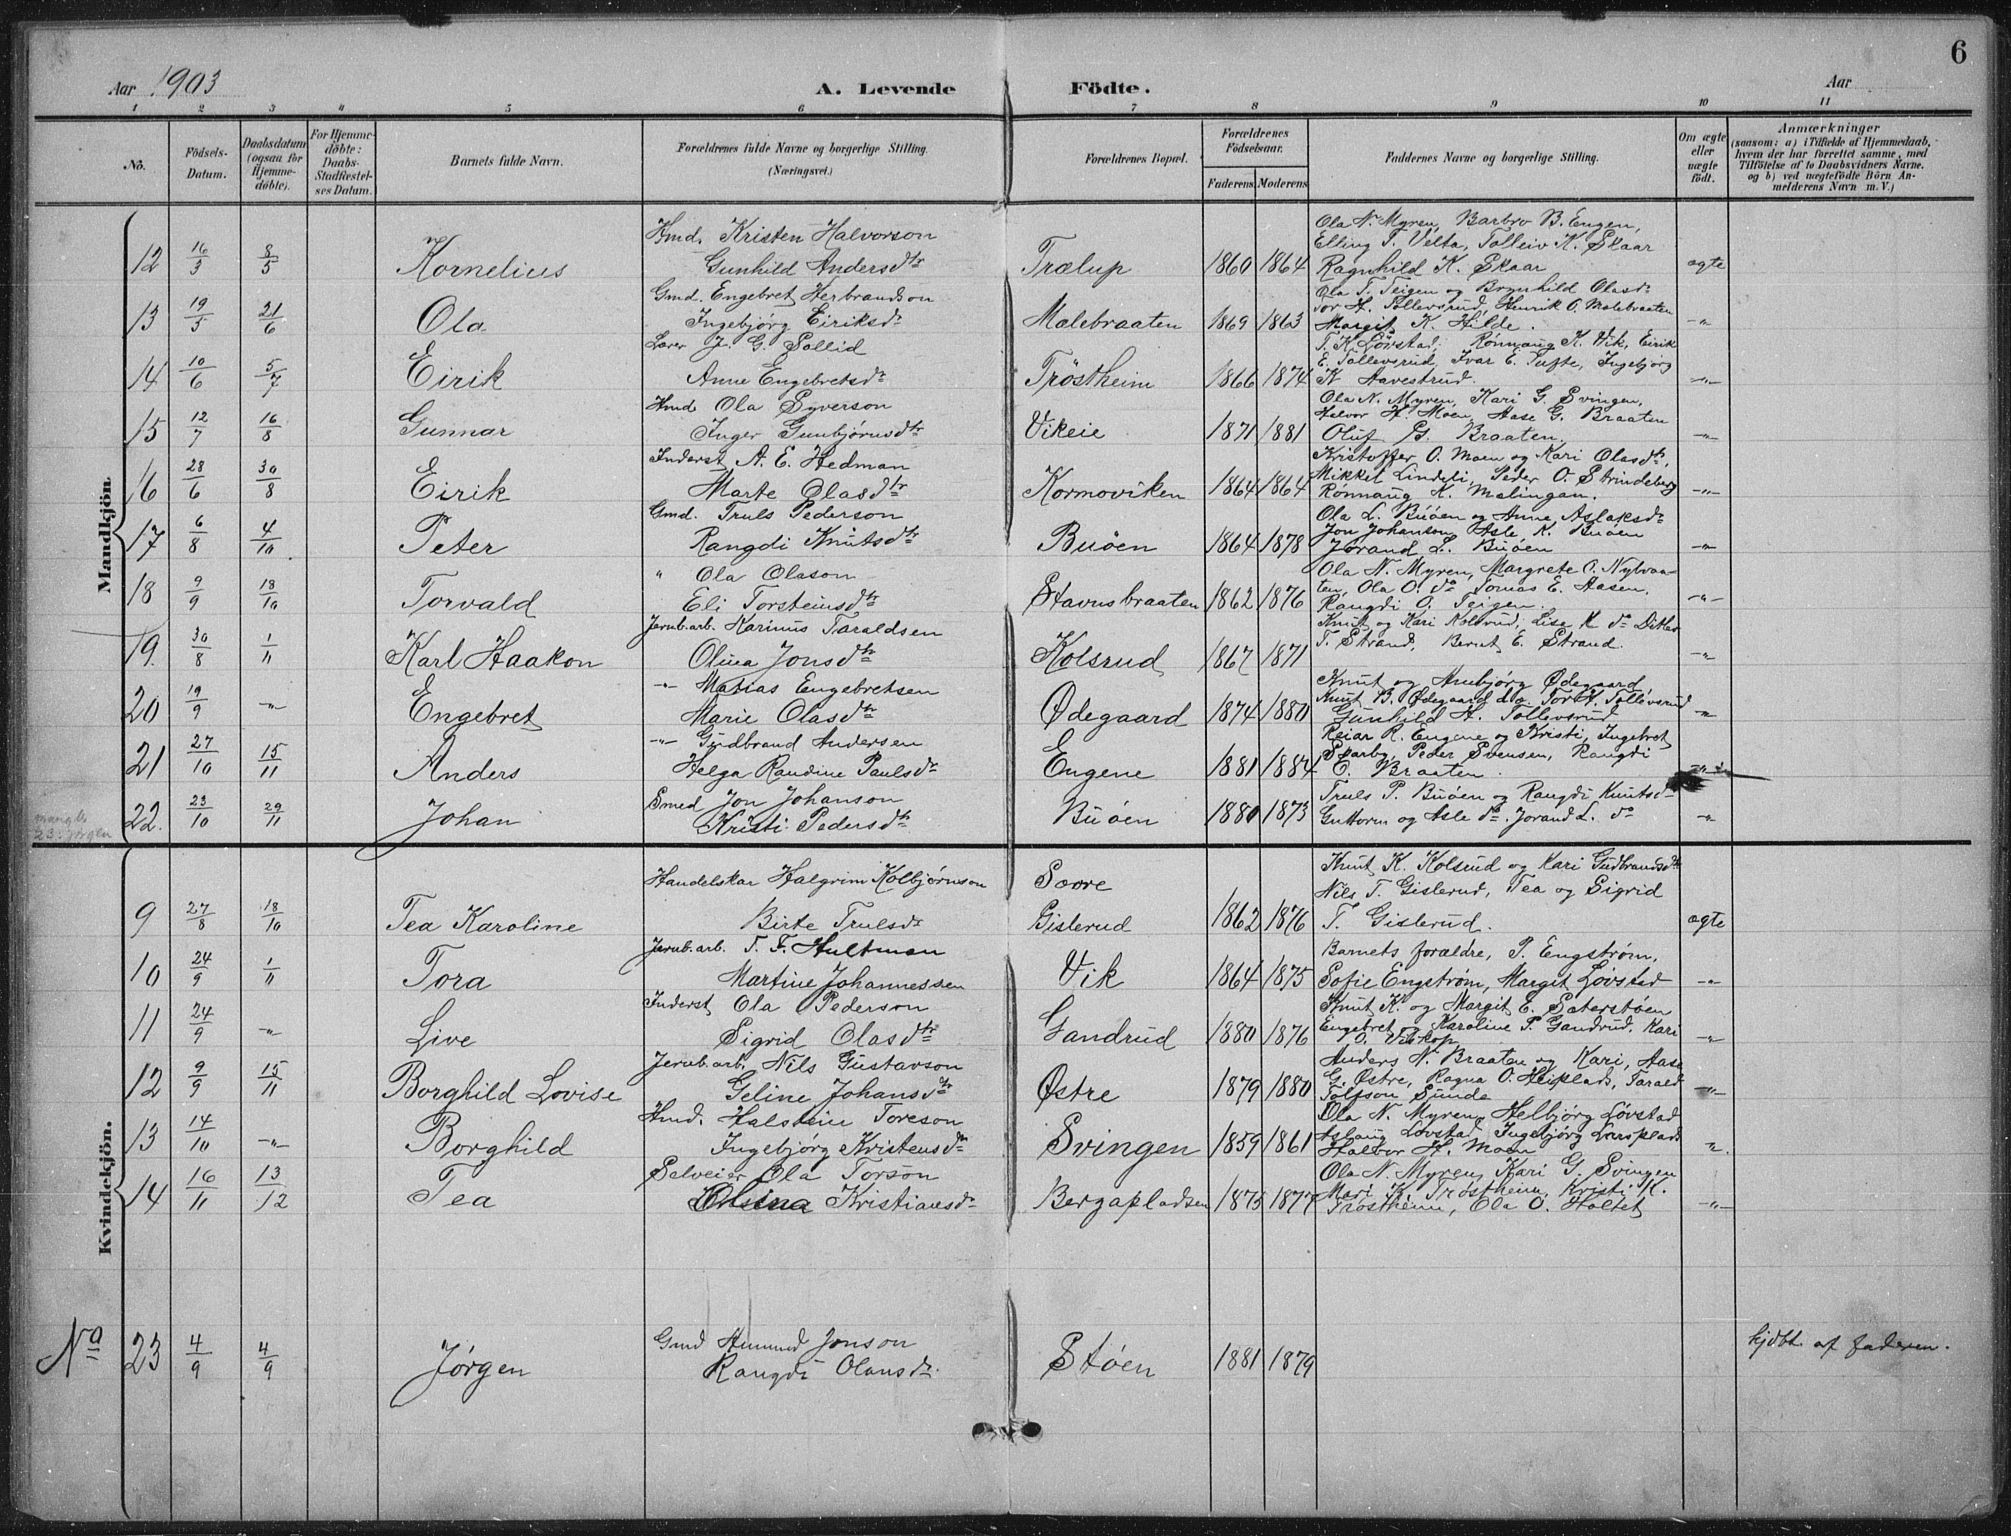 6
Aar 1903 A. Levende Födte. Aar
1 2 3 4 5 6 7 8 9 10 11
No.
Födsels-Datum.
Daabsdatum (ogsaa for Hjemmedöbte).
For Hjemmedöbte: Daabs-Stadfestelses Datum.
Barnets fulde Navn.
Forældrenes fulde Navne og borgerlige Stilling.
(Næringsvei.)
Forældrenes Bopæl.
Forældrenes Födselsaar.
Faderens Moderens
Faddernes Navne og borgerlige Stilling.
Om ægte eller uægte födt.
Anmærkninger
(saasom: a) i Tilfælde af Hjemmedaab, hvem der har forrettet samme, med Tilföielse af to Daabsvidners Navne, og b) ved uægtefödte Börn Anmelderens Navn m. V.)
Mandkjön.
12 16/3 8/5 Kornelius Hmd. Kristen Halvorson
Gunhild Andersdtr Trælup 1860 1864 Ola N. Myren, Barbro B. Engen,
Elling T. Velta, Tolleiv K. Skaar
Ragnhild K. Skaar ægte
13 19/5 21/6 Ola Gmd. Engebret Herbrandson
Ingebjørg Eiriksdr Malebraaten 1869 1863 Ola T. Teigen og Brynhild Olasdr
Tor H. Tollevsrud, Henrik O. Malebraaten
Margit K. Hilde. -"-
14 10/6 5/7 Eirik Lærer J. G. Sollid
Anne Engebretsdr Tröstheim 1866 1874 T. K. Løvstad, Rønnaug K. Vik, Eirik
E. Tollevsrud, Ivar E. Tufte, Ingebjörg
K. Aavestrud. -"-
15 12/7 16/8 Gunnar Hmd Ola Syverson
Inger Gunbjørnsdtr Vikeie 1871 1881 Ola N. Myren, Kari G. Svingen,
Halvor H. Moen, Aase G. Braaten
Oluf G. Braaten. -"-
16 28/6 30/8 Eirik Inderst A. E. Hedman
Marte Olasdtr Kormoviken 1864 1864 Kristoffer O. Moen og Kari Olasdtr,
Mikkel Lindeli, Peder O. Strindeberg
Rønnaug K. Malingan. -"-
17 6/8 4/10 Peter Gmd. Truls Pederson
Rangdi Knutsdtr Buöen 1864 1878 Ola L. Buöen og Anne Aslaksdr
Jon Johanson, Asle K. Buöen
Jorand L. Buöen -"-
18 9/9 18/10 Torvald " Ola Olason
Eli Torsteinsdtr Stavnsbraaten 1862 1876 Ola N. Myren, Margrete O. Nybraa-
ten, Ola O. do Tomas E. Aasen,
Rangdi O. Teigen. -"-
19. 30/8 1/11 Karl Haakon Jernb.arb. Karinus Taraldsen
Olina Jonsdtr Kolsrud 1867 1871 Knut og Kari Kolsrud, Lise K do Ditlev
T. Strand, Bernt E. Strand. -"-
20 19/9 -"- Engebret -"- Matias Engebretsen
Marie Olasdtr Ødegaard 1874 1880 Knut og Anbjörg Ødegaard
Knut B. Ødegaard do Tor H. Tollevsrud
Gunhild H. Tollevsrud -"-
21 27/10 15/11 Anders -"- Gudbrand Andersen
Helga Randine Paulsdr Engene 1881 1884 Reiar R. Engene og Kristi, Ingebret
Skarby, Peder Svensen, Rangdi
O. Braaten. -"-
22. 23/10 29/11 Johan Smed Jon Johanson
Kristi Pedersdtr Buöen 1880 1873 Truls P. Buöen og Rangdi Knutsdr
Guttorm og Asle do. Jorand L. do -"-
mangler
23. Jørgen
Kvindekjön.
9 27/8 18/10 Tea Karoline Handelskar Halgrim Kolbjørnson
Birte Trulsdr Sorre
Gislerud 1862 1876 Knut K. Kolsrud og Kari Gudbrandsdtr
Nils T. Gislerud, Tea og Sigrid
T. Gislerud. ægte
10 24/9 1/11 Tora Jernb.arb. T. F. Hultman
Martine Johannessen Vik 1864 1875 Barnets forældre, P. Engstrøm,
Sofie Engstrøm, Margit Løvstad -"-
11 24/9 -"- Live Inderst Ola Pederson
Sigrid Olasdtr Gandrud 1880 1876 Knut K. og Margit E. Sæterstöen
Engebret og Karoline P. Gandrud, Kari
O. Viskop -"-
12 9/9 15/11 Borghild Lovise Jernb.arb. Nils Gustavson
Geline Johansdtr Østre 1879 1880 Anders N. Braaten og Kari, Aase
G. Østre, Ragna O. Heiplads, Tarald
Tolfson Sunde -"-
13 14/10 -"- Borghild Hmd. Halstein Toreson
Ingebjørg Kristensdtr Svingen 1859 1861 Ola N. Myren, Helbjörg Løvstad
Aslaug Løvstad, Ingebjörg Larsplads
Halvor H. Moen -"-
14 16/11 13/12 Tea Selveier Ola Torson
Olina Kristiansdr Bergapladsen 1875 1877 Ola N. Myren, Kari G. Svingen
Mari K. Trøstheim, Kristi K.
Trøstheim, Ola O. Holtet -"-
No 23 4/9 4/9 Jørgen Gmd Amund Jonson
Rangdi Olansdr Stöen 1881 1879 hjdbt. af faderen.